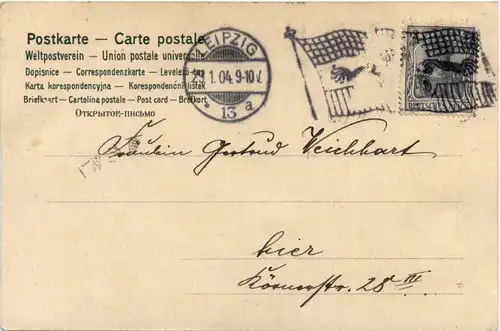 Postkarte — Carte postale
Weltpostverein — Union postale universelle
Dopisnice — Correspondenzkarte — Levelező-lap
Karta korespondencyjna — Korespondenční lístek
Briefkaart — Cartolina postale — Post card — Brefkort
Открытое-письмо
LEIPZIG
1.04.9-10V.
* 13 a
Fräulein Gertrud Weichhart
hier
Körnerstr. 28 III